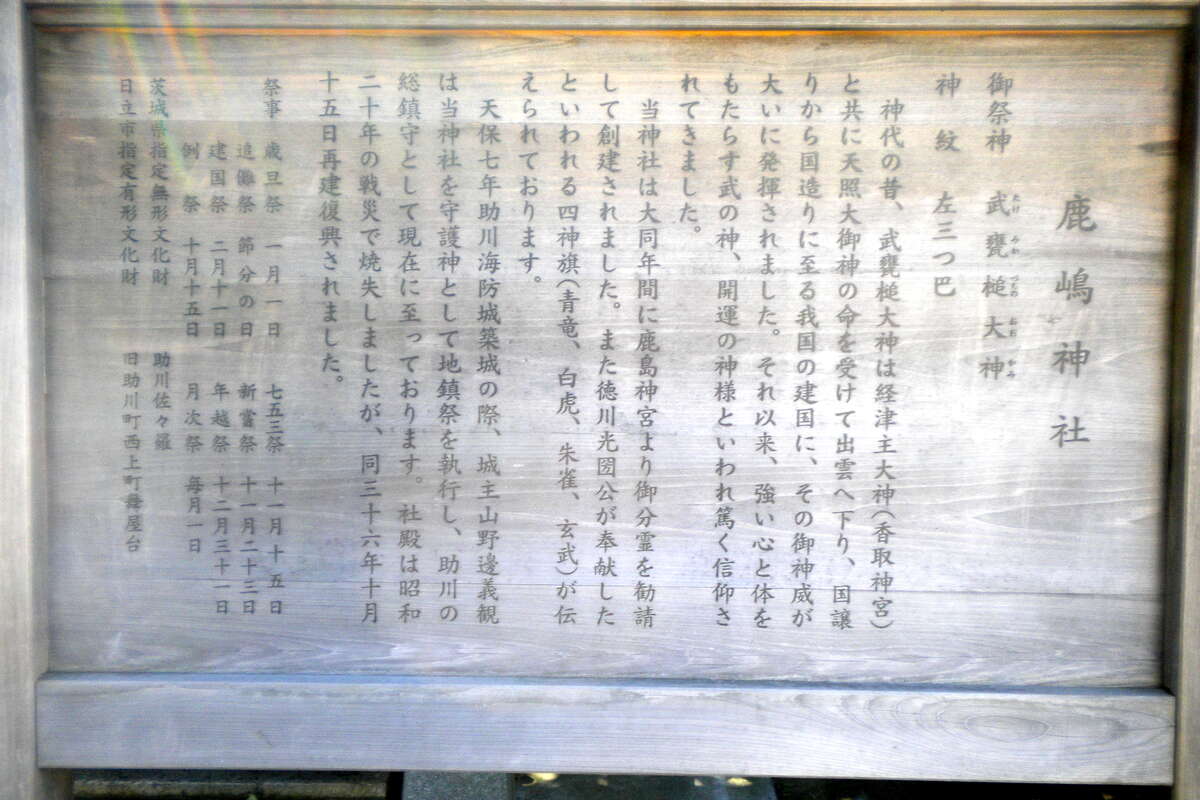 鹿嶋神社
御祭神　武甕槌大神
たけ みか づちの おお かみ
神　紋　左三つ巴
神代の昔、武甕槌大神は経津主大神(香取神宮)
と共に天照大御神の命を受けて出雲へ下り、国譲
りから国造りに至る我国の建国に、その御神威が
大いに発揮されました。それ以来、強い心と体を
もたらす武の神、開運の神様といわれ篤く信仰さ
れてきました。
当神社は大同年間に鹿島神宮より御分霊を勧請
して創建されました。また徳川光圀公が奉献した
といわれる四神旗(青竜、白虎、朱雀、玄武)が伝
えられております。
天保七年助川海防城築城の際、城主山野邊義観
は当神社を守護神として地鎮祭を執行し、助川の
総鎮守として現在に至っております。社殿は昭和
二十年の戦災で焼失しましたが、同三十六年十月
十五日再建復興されました。
祭事　歳旦祭　一月一日　七五三祭　十一月十五日
追儺祭　節分の日　新嘗祭　十一月二十三日
建国祭　二月十一日　年越祭　十二月三十一日
例　祭　十月十五日　月次祭　毎月一日
茨城県指定無形文化財　助川佐々羅
日立市指定有形文化財　旧助川町西上町舞屋台